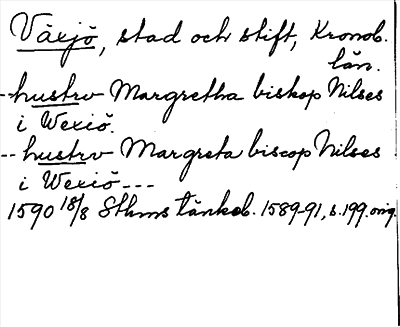 Växjö, stad och stift, Kronob.
län.
--hustrv Margretha biskop Nilses
i Wexiö.
--hustrv Margreta biscop Nilses
i Wexiö---
1590 18/8 Sthms tänkeb. 1589-91, s. 199. orig.